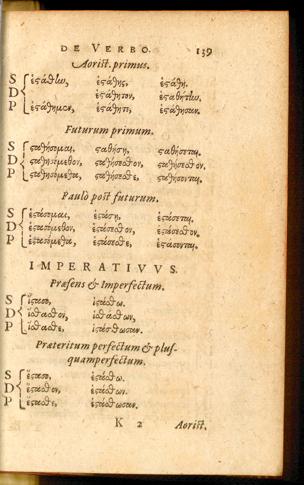 DE VERBO. 139
Aorist. primus.
S ἐστάθην, ἐστάθης, ἐστάθη.
D ἐστάθητον, ἐσταθήτην.
P ἐστάθημεν, ἐστάθητε, ἐστάθησαν.
Futurum primum.
S σταθήσομαι, σταθήσῃ, σταθήσεται.
D σταθησόμεθον, σταθήσεσθον, σταθήσεσθον.
P σταθησόμεθα, σταθήσεσθε, σταθήσονται.
Paulò pòst futurum.
S ἑστάσομαι, ἑστάσῃ, ἑστάσεται.
D ἑστασόμεθον, ἑστάσεσθον, ἑστάσεσθον.
P ἑστασόμεθα, ἑστάσεσθε, ἑστάσονται.
IMPERATIVVS.
Præsens & Imperfectum.
S ἵστασο, ἱστάσθω.
D ἵστασθον, ἱστάσθων.
P ἵστασθε, ἱστάσθωσαν.
Præteritum perfectum & plus-
quamperfectum.
S ἕστασο, ἑστάσθω.
D ἕστασθον, ἑστάσθων.
P ἕστασθε, ἑστάσθωσαν.
K 2 Aorist.